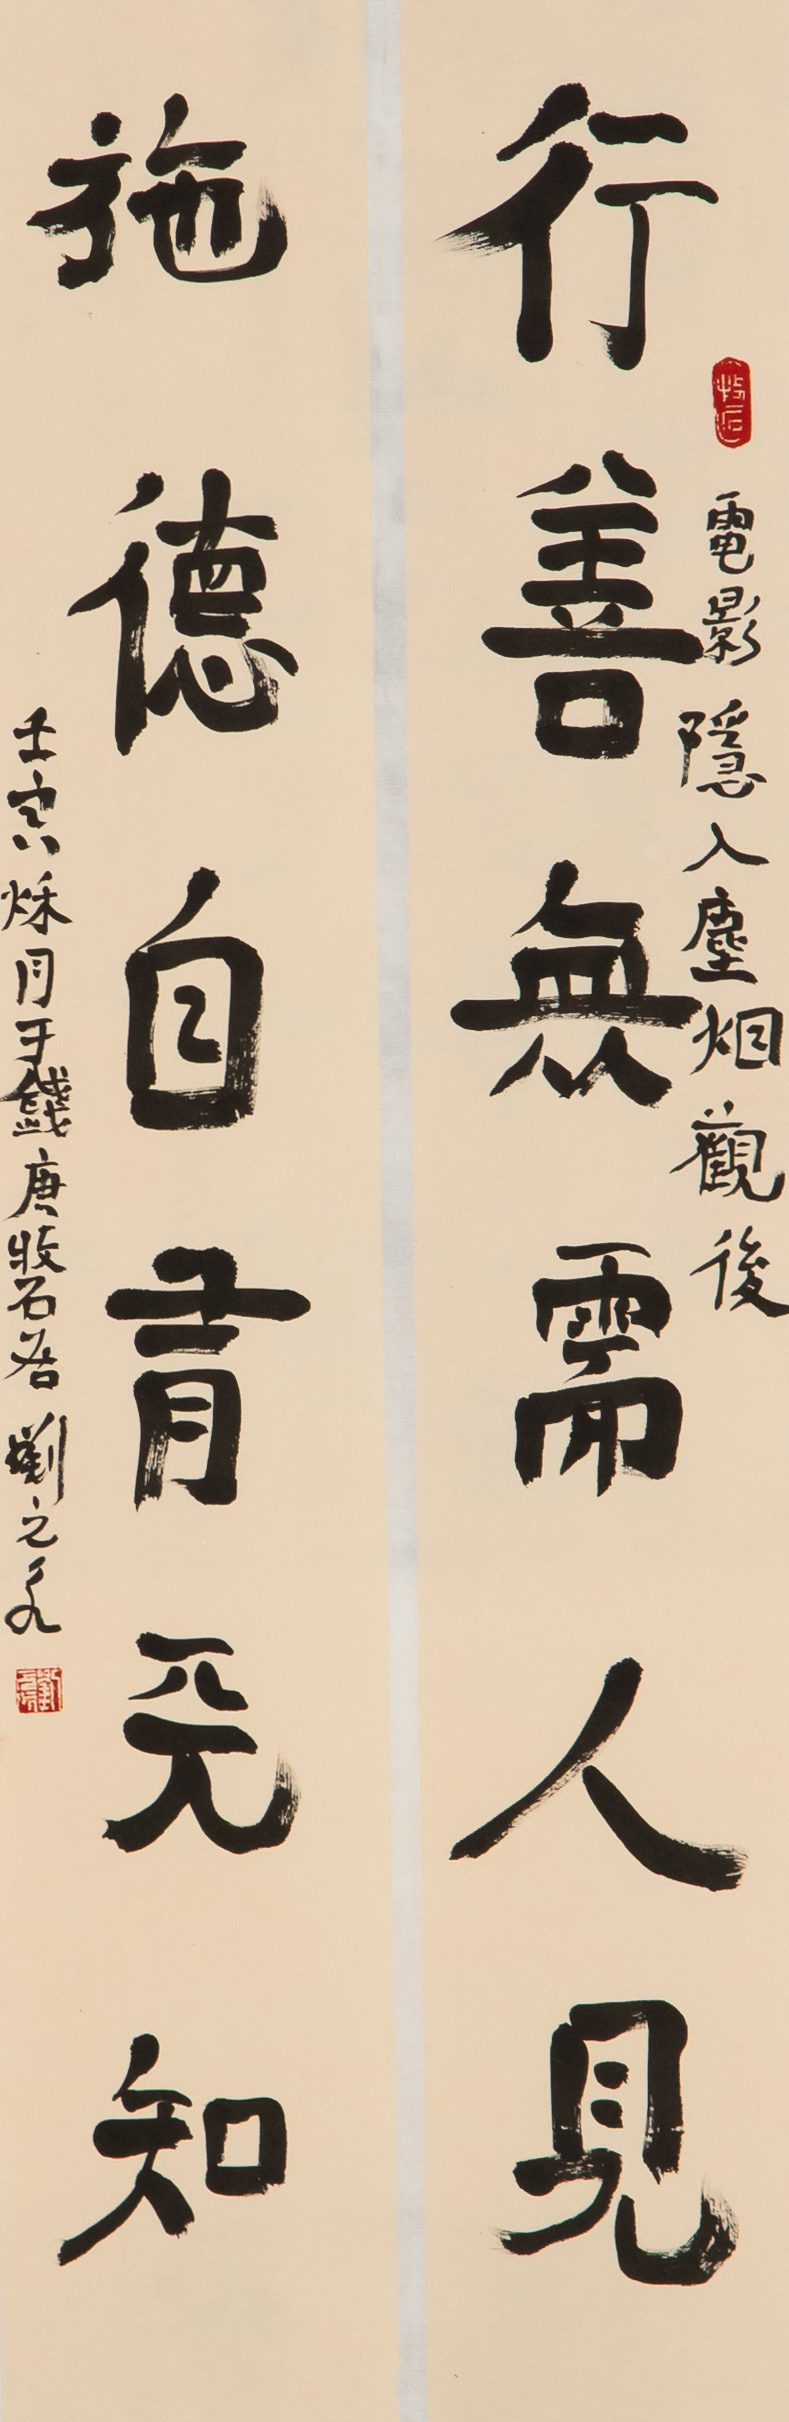 電影隱入塵烟觀後
行善無需人見
施德自有天知
壬寅秌月于錢唐牧石居劉